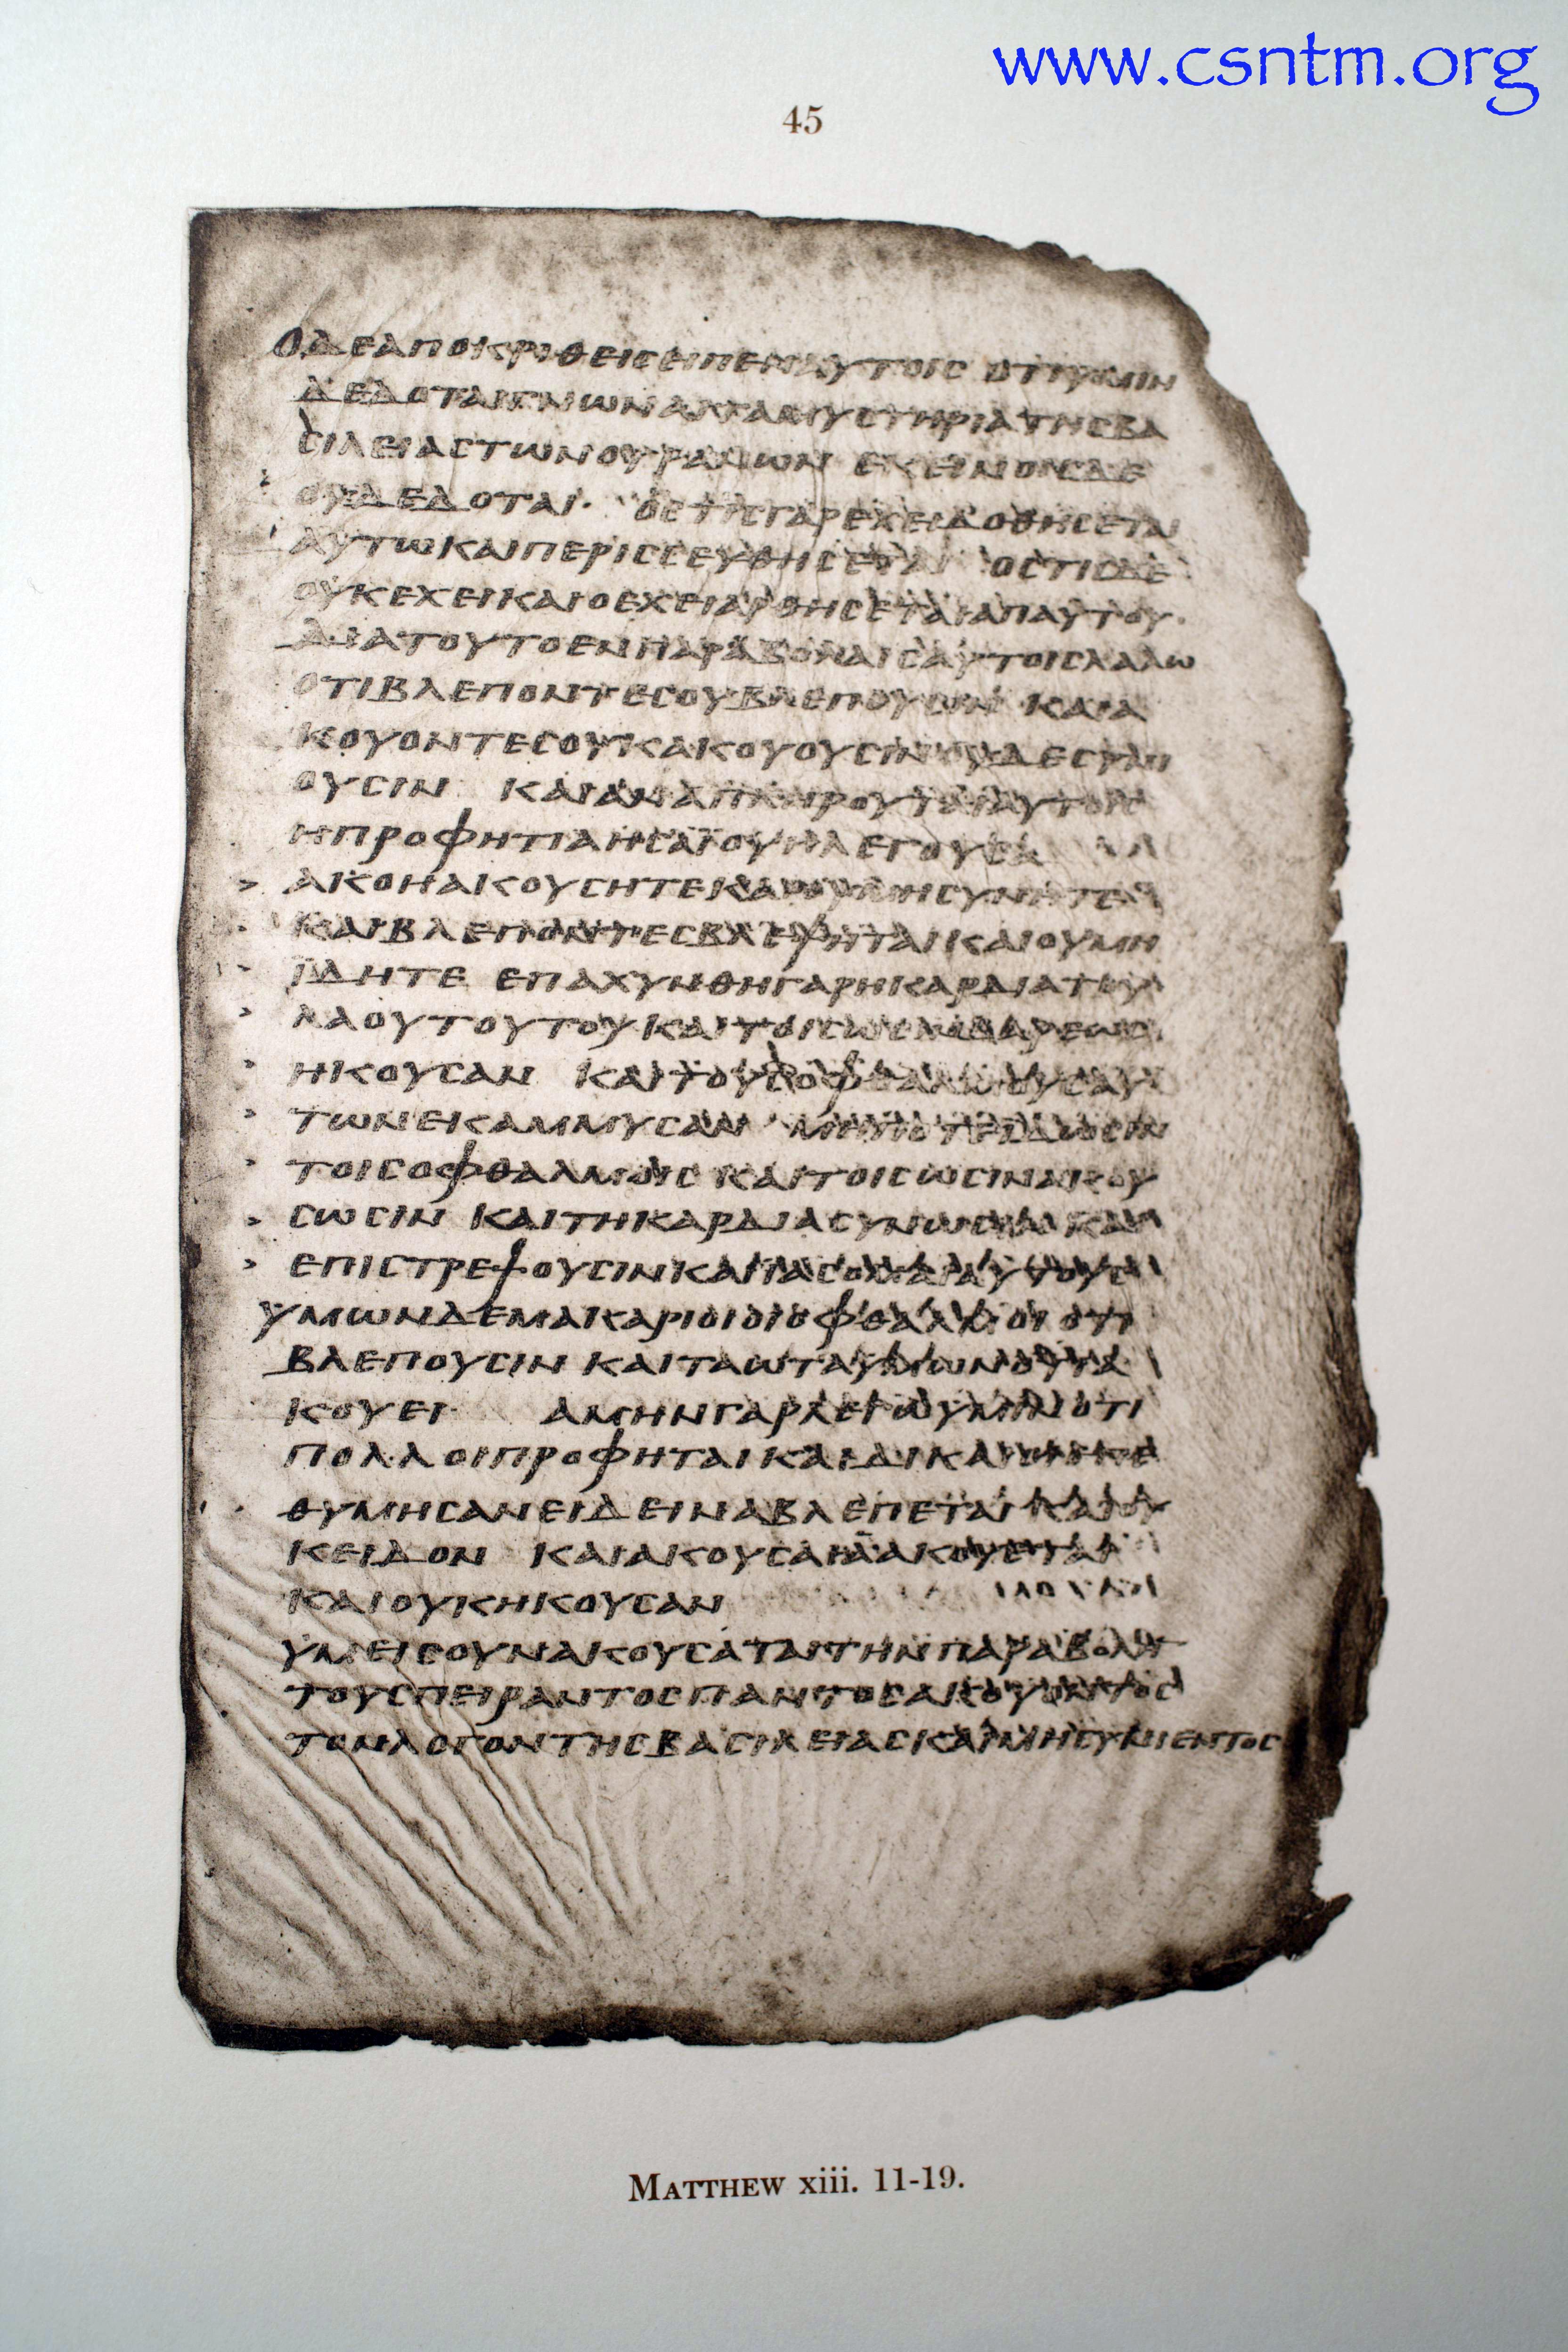 www.csntm.org
45
ΟΔΕΑΠΟΚΡΙΘΕΙСΕΙΠΕΝΑΥΤΟΙС ΟΤΙΥΜΙΝ
ΔΕΔΟΤΑΙΓΝΩΝΑΙΤΑΜΥСΤΗΡΙΑΤΗСΒΑ
СΙΛΕΙΑСΤΩΝΟΥΡΑΝΩΝ ΕΚΕΙΝΟΙСΔΕ
ΟΥΔΕΔΟΤΑΙ· ΟСΤΙСΓΑΡΕΧΕΙΔΟΘΗСΕΤΑΙ
ΑΥΤΩΚΑΙΠΕΡΙССΕΥΘΗСΕΤΑΙ ΟСΤΙСΔΕ
ΟΥΚΕΧΕΙΚΑΙΟΕΧΕΙΑΡΘΗСΕΤΑΙΑΠΑΥΤΟΥ·
ΔΙΑΤΟΥΤΟΕΝΠΑΡΑΒΟΛΑΙСΑΥΤΟΙСΛΑΛΩ
ΟΤΙΒΛΕΠΟΝΤΕСΟΥΒΛΕΠΟΥСΙΝ ΚΑΙΑ
ΚΟΥΟΝΤΕСΟΥΚΑΚΟΥΟΥСΙΝΟΥΔΕСΥΝΙ
ΟΥСΙΝ ΚΑΙΑΝΑΠΛΗΡΟΥΤΑΙΑΥΤΟΙС
ΗΠΡΟΦΗΤΙΑΗСΑΙΟΥΗΛΕΓΟΥСΑ
> ΑΚΟΗΑΚΟΥСΗΤΕΚΑΙΟΥΜΗСΥΝΗΤΕ
ΚΑΙΒΛΕΠΟΝΤΕСΒΛΕΨΗΤΑΙΚΑΙΟΥΜΗ
> ΙΔΗΤΕ ΕΠΑΧΥΝΘΗΓΑΡΗΚΑΡΔΙΑΤΟΥ
> ΛΑΟΥΤΟΥΤΟΥΚΑΙΤΟΙСΩСΙΝΒΑΡΕΩС
> ΗΚΟΥСΑΝ ΚΑΙΤΟΥСΟΦΘΑΛΜΟΥСΑΥ
> ΤΩΝΕΚΑΜΜΥСΑΝ ΜΗΠΟΤΕΙΔΩСΙΝ
> ΤΟΙСΟΦΘΑΛΜΟΙС ΚΑΙΤΟΙСΩСΙΝΑΚΟΥ
> СΩСΙΝ ΚΑΙΤΗΚΑΡΔΙΑСΥΝΩСΙΝ ΚΑΙ
> ΕΠΙСΤΡΕΨΟΥСΙΝΚΑΙΙΑСΟΜΑΙΑΥΤΟΥС
ΥΜΩΝΔΕΜΑΚΑΡΙΟΙΟΙΟΦΘΑΛΜΟΙ ΟΤΙ
ΒΛΕΠΟΥСΙΝ ΚΑΙΤΑΩΤΑΥΜΩΝΟΤΙΑ
ΚΟΥΕΙ ΑΜΗΝΓΑΡΛΕΓΩΥΜΙΝΟΤΙ
ΠΟΛΛΟΙΠΡΟΦΗΤΑΙΚΑΙΔΙΚΑΙΟΙΕΠΕ
ΘΥΜΗСΑΝΕΙΔΕΙΝΑΒΛΕΠΕΤΑΙΚΑΙΟΥ
ΚΕΙΔΟΝ ΚΑΙΑΚΟΥСΑΙΑΑΚΟΥΕΤΑΙ
ΚΑΙΟΥΚΗΚΟΥСΑΝ
ΥΜΕΙСΟΥΝΑΚΟΥСΑΤΑΙΤΗΝΠΑΡΑΒΟΛΗ
ΤΟΥСΠΕΙΡΑΝΤΟСΠΑΝΤΟСΑΚΟΥΟΝΤΟС
ΤΟΝΛΟΓΟΝΤΗСΒΑСΙΛΕΙΑСΚΑΙΜΗСΥΝΙΕΝΤΟС
MATTHEW xiii. 11-19.